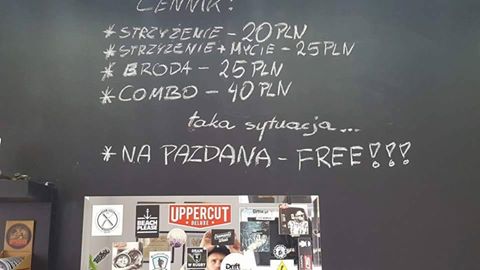 CENNIK:
* STRZYŻENIE - 20 PLN
* STRZYŻENIE + MYCIE - 25 PLN
* BRODA - 25 PLN
* COMBO - 40 PLN
taka sytuacja...
* NA PAZDANA - FREE!!!
BEACH
PLEASE
UPPERCUT
DELUXE